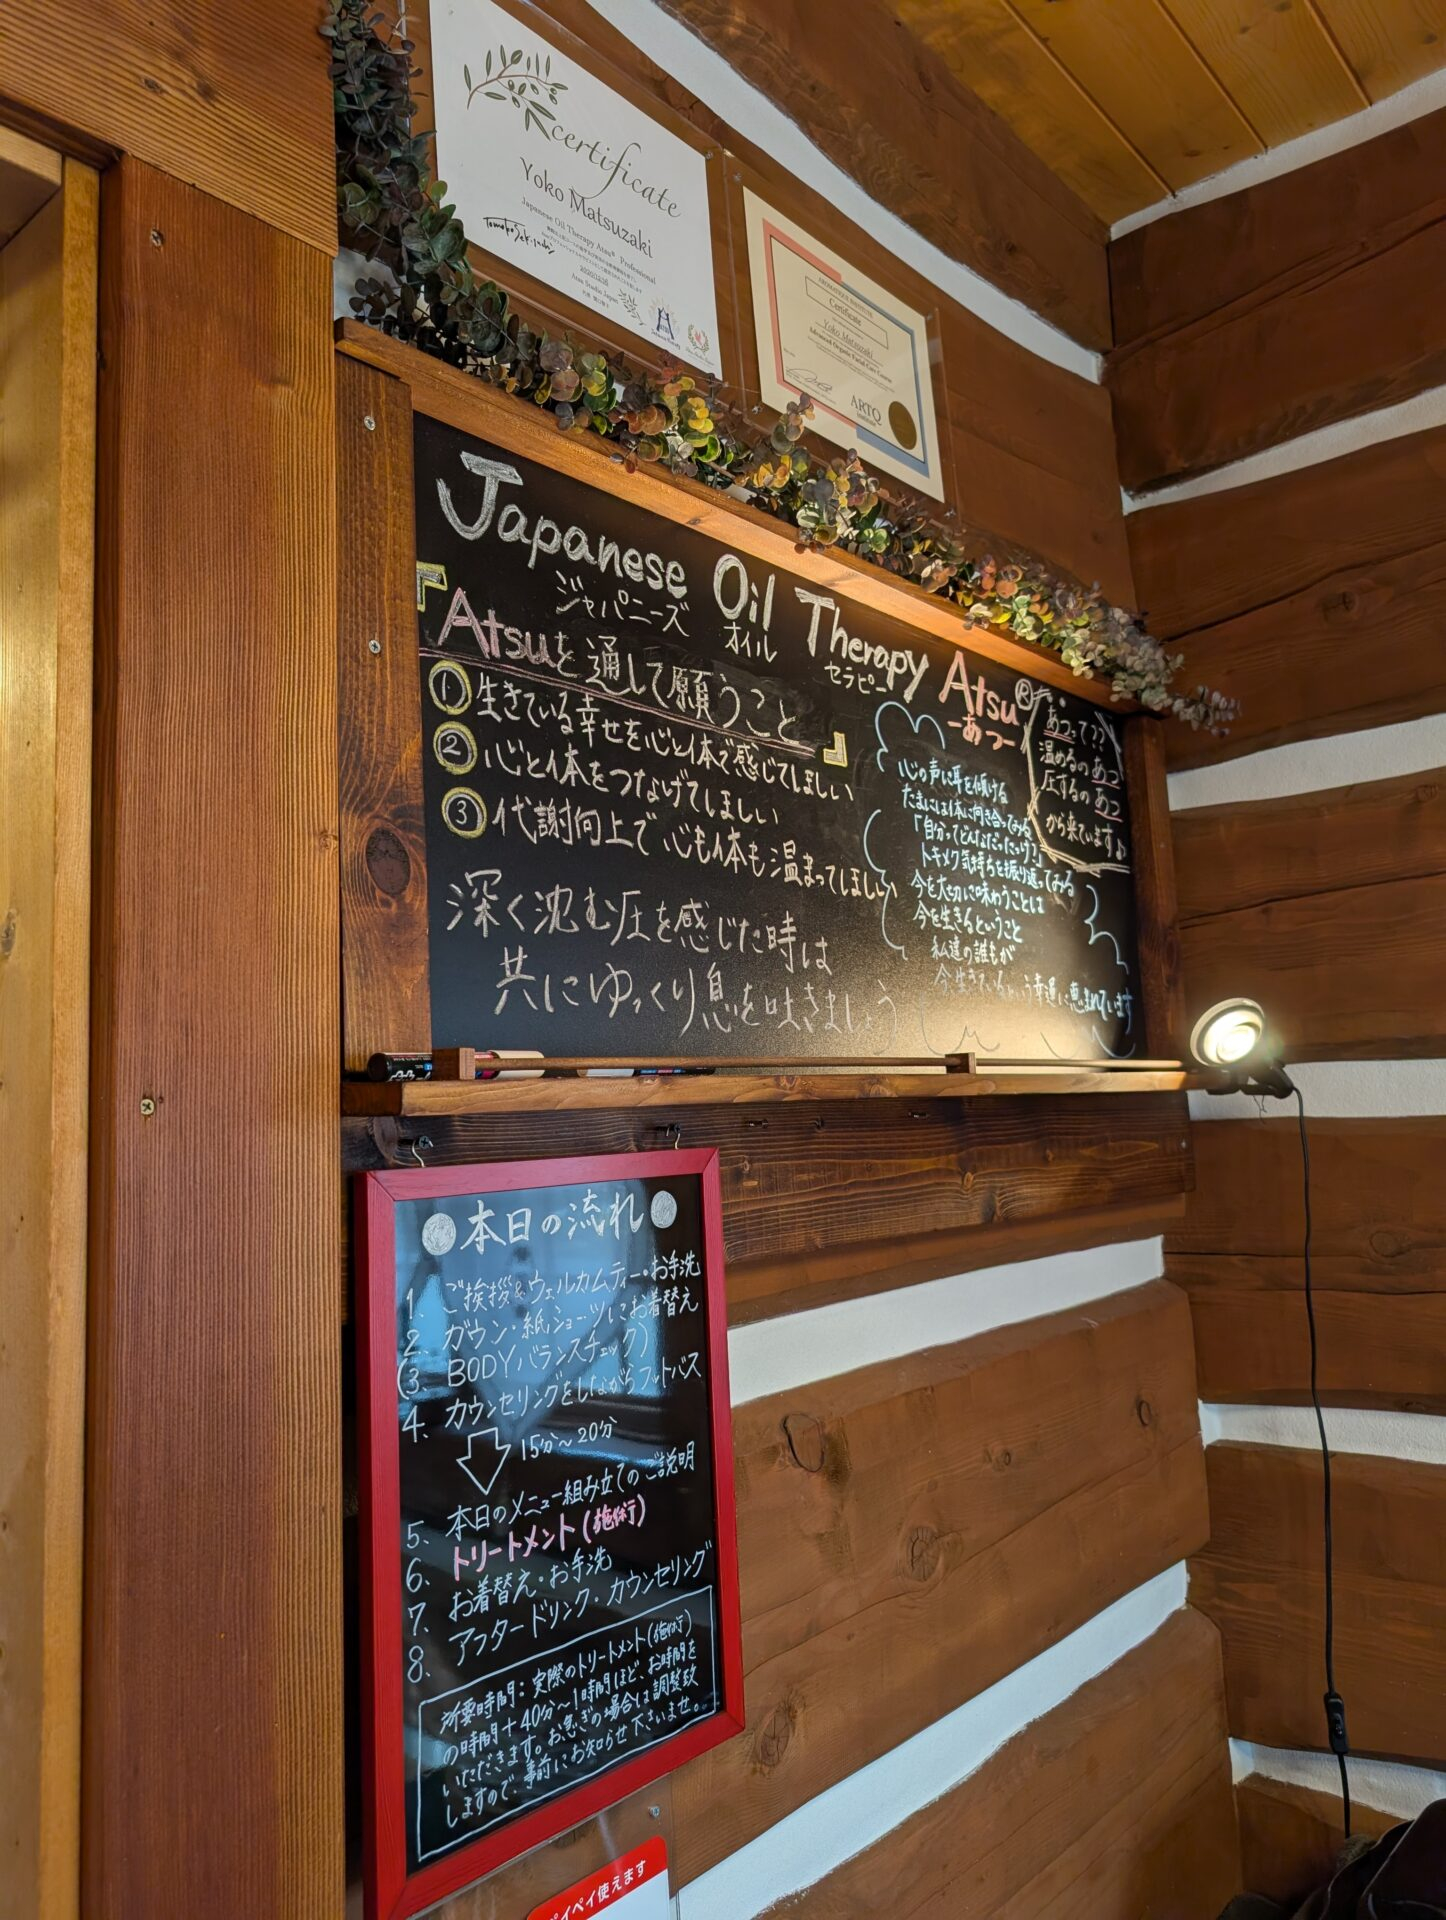 certificate
Yoko Matsuzaki
Japanese Oil Therapy Atsu® Professional
Atsu Studio Japan
AROMATIQUE INSTITUTE
Certificate
Yoko Matsuzaki
Advanced Organic Facial Care Course
ARTQ
Japanese Oil Therapy Atsu®
ジャパニーズ オイル セラピー -あつ-
『Atsuを通して願うこと』
① 生きている幸せを心と体で感じてほしい
② 心と体をつなげてほしい
③ 代謝向上で心も体も温まってほしい
深く沈む圧を感じた時は
共にゆっくり息を吐きましょう
あつって??
温めるのあつ
圧するのあつ
から来ています♪
心の声に耳を傾ける
たまには体に向き合ってみる
「自分ってどんなだったっけ?」
トキメク気持ちを振り返ってみる
今を大切に味わうことは
今を生きるということ
私達の誰もが
今生きているという幸運に恵まれています
●本日の流れ●
1. ご挨拶&ウェルカムティー・お手洗
2. ガウン・紙ショーツにお着替え
(3. BODYバランスチェック)
4. カウンセリングをしながらフットバス
15分～20分
5. 本日のメニュー組み立てのご説明
6. トリートメント(施術)
7. お着替え・お手洗
8. アフタードリンク・カウンセリング
所要時間:実際のトリートメント(施術)
の時間+40分～1時間ほど、お時間を
いただきます。お急ぎの場合は調整致
しますので、事前にお知らせ下さいませ。
ペイペイ使えます